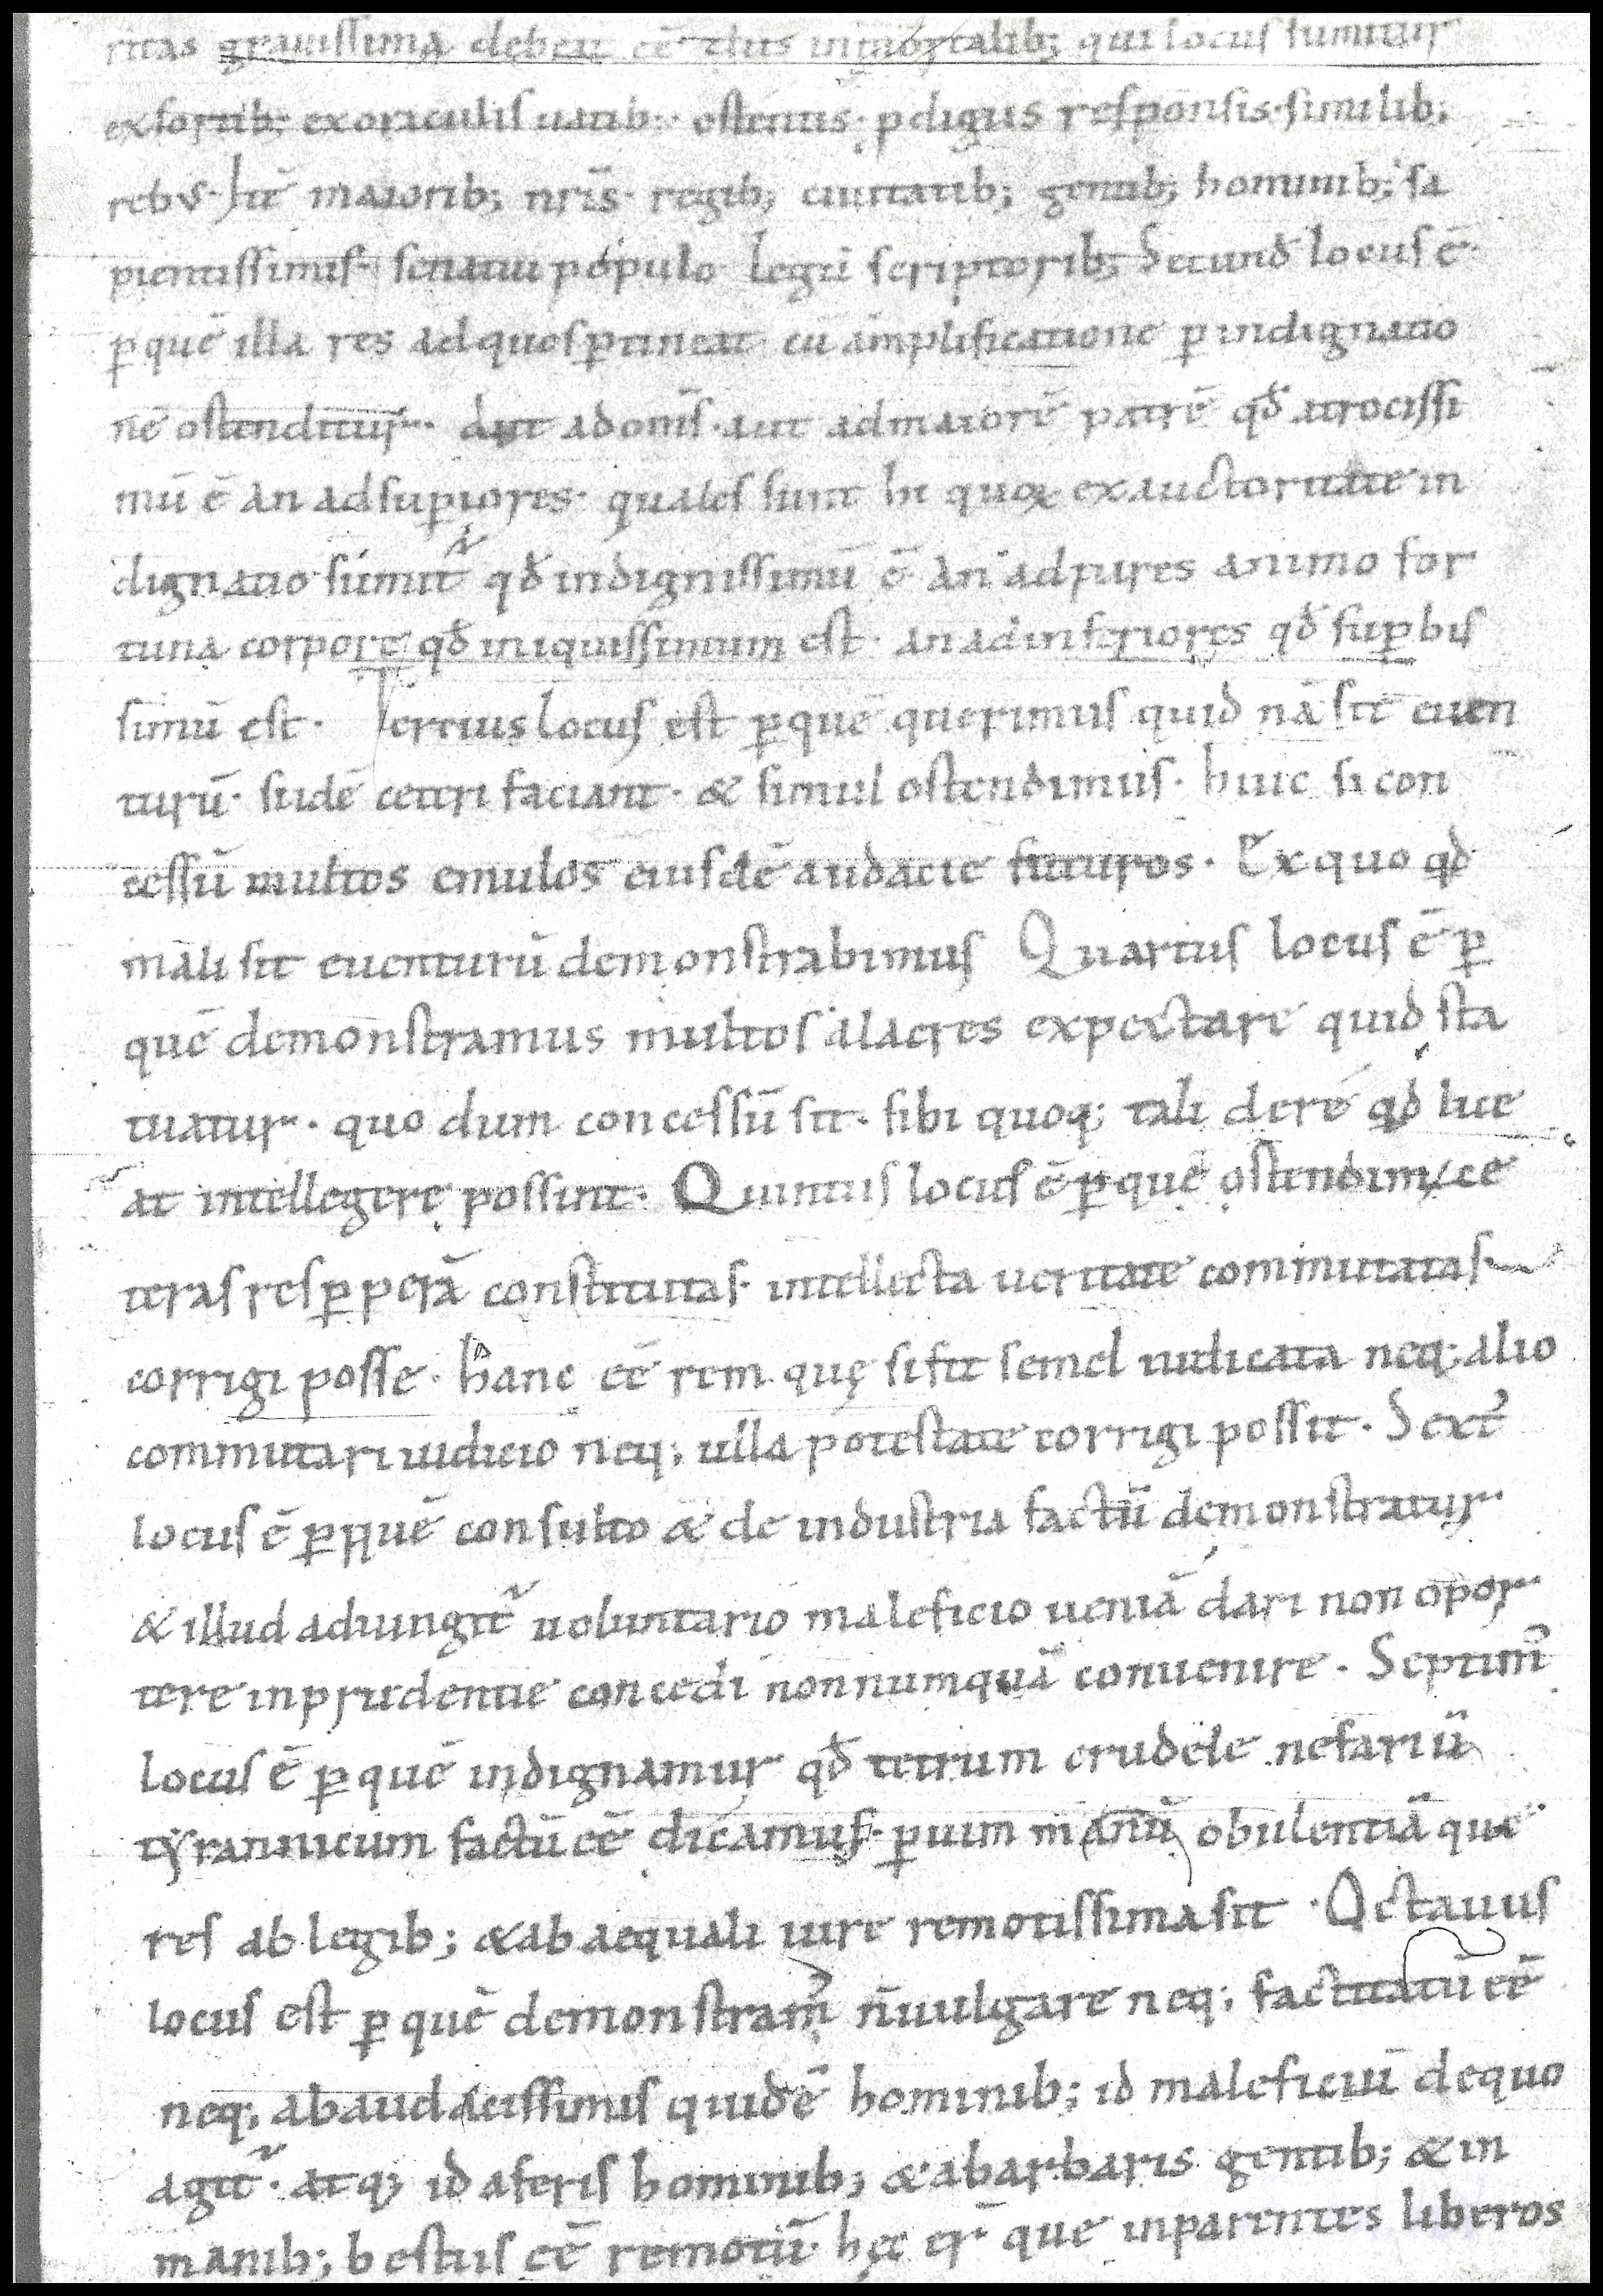 ritas grauissima debeat eē diis inmortalib; qui locus sumitur
ex sortib; ex oraculis uatib; ostentis· pdigiis responsis· similib;
rebus· Itē maiorib; nr̄is· regib; ciuitatib; gentib; hominib; sa
pientissimis· senatui populo legū scriptorib; Secund' locus ē·
p quē illa res ad quos ptineat cū amplificatione p indignatio
nē ostenditur· Aut ad om̄s· aut ad maiorē partē qđ atrocissi
mū ē an ad supiores· quales sunt hi quoꝝ ex auctoritate in
dignatio sumit̃ qđ indignissimū ē an ad pares animo for
tuna corpore qđ iniquissimum est· an ad inferiores qđ supbis
simū est· Tertius locus est p quē querimus quid nā sit euen
turū· si idē ceteri faciant· & simul ostendimus· huic si con
cessū multos emulos eiusdē audacie futuros· Ex quo qđ
mali sit euenturū demonstrabimus Quartus locus ē p
quē demonstramus multos alacres expectare quid sta
tuatur· quo dum concessū sit· sibi quoq; tali de re qđ lice
at intellegere possint· Quintus locus ē p quē ostendim; ce
teras res p perā constitutas· intellecta ueritate commutatas·
corrigi posse· hanc eē rem quę si sit semel iudicata neq; alio
commutari iudicio neq; ulla potestate corrigi possit· Sext'
locus ē p quē consulto & de industria factū demonstratur
& illud adiungit̃ uoluntario maleficio ueniā dari non opor
tere inprudentie concedi nonnumquā conuenire· Septim'
locus ē p quē indignamur qđ tetrum crudele nefariū
tyrannicum factū eē dicamus· p uim manū obulentiā que
res ab legib; & ab aequali iure remotissima sit· Octauus
locus est p quē demonstram' n̄ uulgare neq; factitatū eē
neq; ab audacissimis quidē hominib; id maleficiū de quo
agit̃· atq; id a feris hominib; & a barbaris gentib; & in
manib; bestiis eē remotū· hęc er̄ que in parentes liberos